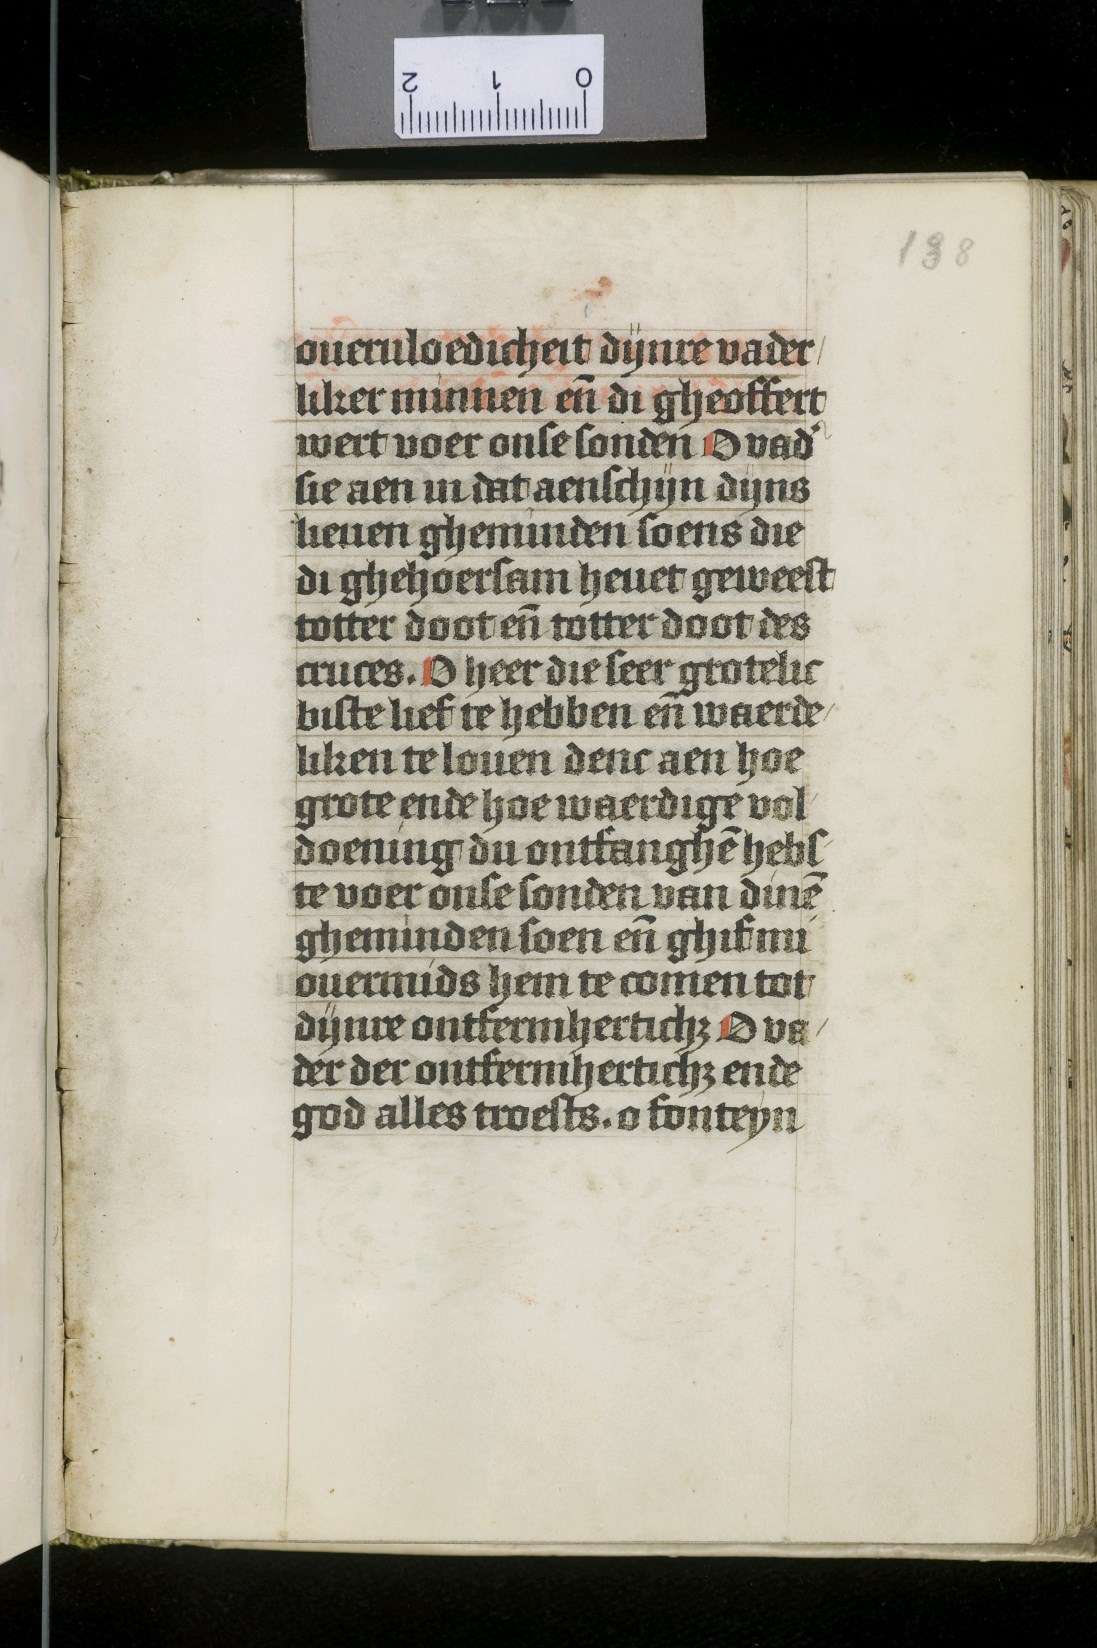 2 1 0
138
oueruloedicheit dijnre vader/
liker minnen eñ di gheoffert
wert voer onse sonden O vad'
sie aen in dat aenschijn dijns
lieuen gheminden soens die
di ghehoersam heuet geweest
totter doot eñ totter doot des
cruces. O heer die seer grotelic
biste lief te hebben eñ waerde/
liken te louen denc aen hoe
grote ende hoe waerdige vol/
doening du ontfanghē hebs/
te voer onse sonden van dinē
gheminden soen eñ ghif mi
ouermids hem te comen tot
dijnre ontfermhertichꝫ O va/
der der ontfermhertichꝫ ende
god alles troests. o fonteyn